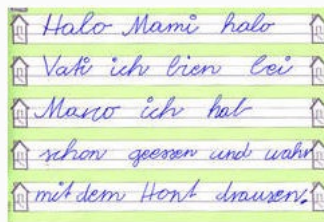 Halo Mami halo
Vati ich bien bei
Marco ich hab
schon geessen und wahr
mit dem Hont drausen.